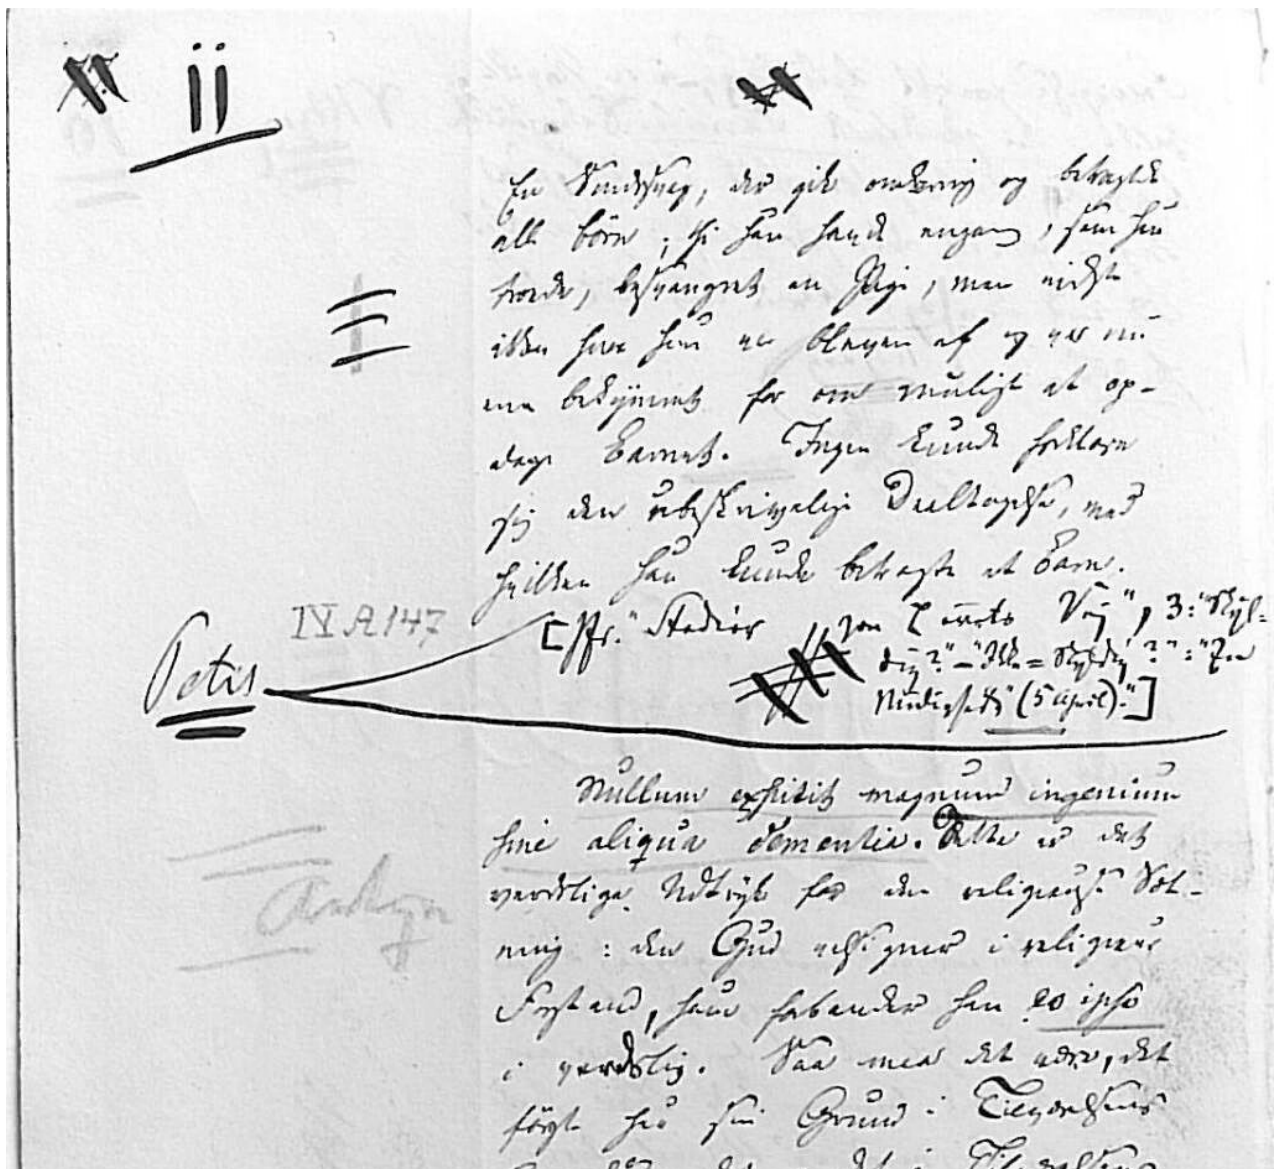 ii
En Sindssvag, der gik omkring og betragtede
alle Børn; thi han havde engang, som han
troede, besvangret en Pige, men vidste
ikke hvor hun var bleven af og var nu
ene bekymret for om muligt at op-
dage Barnet. Ingen kunde forklare
sig den ubeskrivelige Deeltagelse, med
hvilken han kunde betragte et Barn.
IV A 147
[Pr. "Stadier paa Livets Vei", 3: "Skyl-
dig?" – "Ikke=Skyldig?": "En
Mulighed" (5 April)."]
Petit
Nullum exstitit magnum ingenium
sine aliqua dementia. Dette er det
verdslige Udtryk for den religieuse Sæt-
ning: den Gud velsigner i religieus
Forstand, ham forbander han eo ipso
i verdslig. Saa maa det være, det
første har sin Grund i Tilværelsens